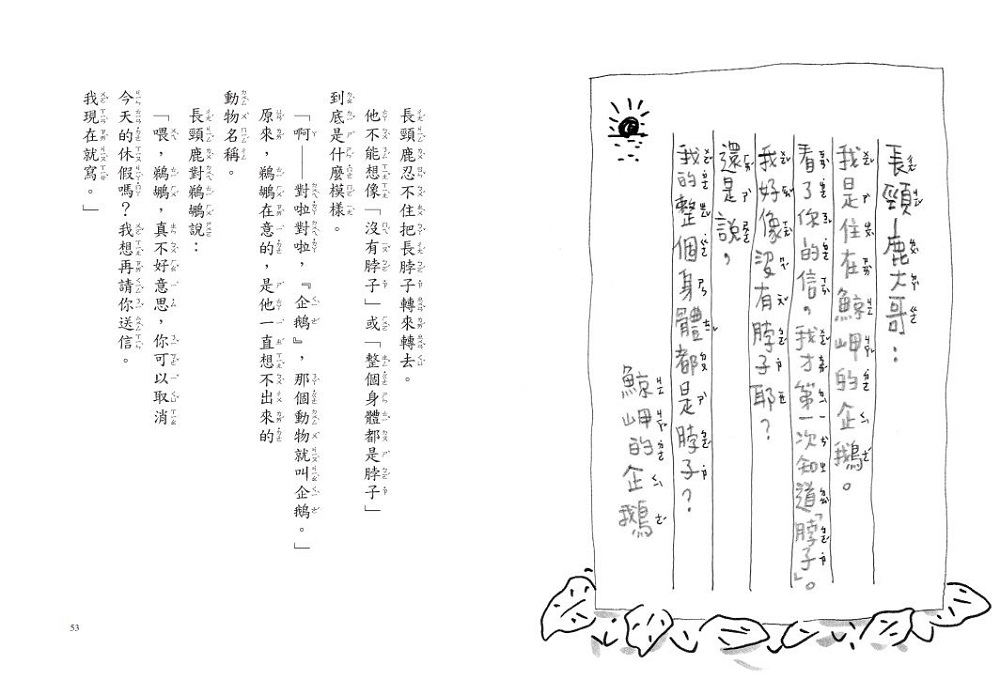 長頸鹿大哥：
我是住在鯨岬的企鵝。
看了你的信，我才第一次知道「脖子」。
我好像沒有脖子耶？
還是說，
我的整個身體都是脖子？
鯨岬的企鵝
長頸鹿忍不住把長脖子轉來轉去。
他不能想像「沒有脖子」或「整個身體都是脖子」
到底是什麼模樣。
「啊——對啦對啦，『企鵝』，那個動物就叫企鵝。」
原來，鵜鶘在意的，是他一直想不出來的
動物名稱。
長頸鹿對鵜鶘說：
「喂，鵜鶘，真不好意思，你可以取消
今天的休假嗎？我想再請你送信。
我現在就寫。」
53